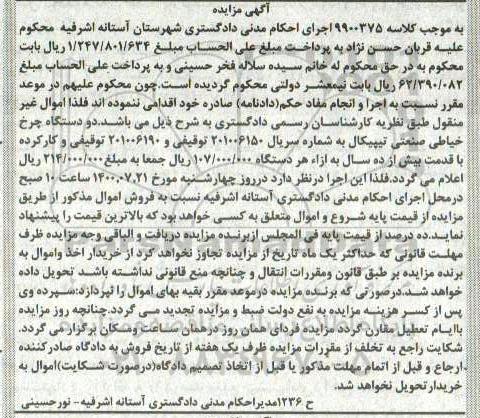 آگهی مزایده
به موجب کلاسه ۹۹۰۰۳۷۵ اجرای احکام مدنی دادگستری شهرستان آستانه اشرفیه محکوم
علیه قربان حسن نژاد به پرداخت مبلغ علی الحساب مبلغ ۱/۲۴۷/۸۰۱/۶۳۴ ریال بابت
محکوم به در حق محکوم له خانم سیده سلاله فخر حسینی و به پرداخت علی الحساب مبلغ
۶۲/۳۹۰/۰۸۲ ریال بابت نیمعشر دولتی محکوم گردیده است.چون محکوم علیهم در موعد
مقرر نسبت به اجرا و انجام مفاد حکم(دادنامه) صادره خود اقدامی ننموده اند فلذا اموال غیر
منقول طبق نظریه کارشناسان رسمی دادگستری به شرح ذیل می باشد.دو دستگاه چرخ
خیاطی صنعتی تیپیکال به شماره سریال ۲۰۱۰۰۶۱۵۰ توقیفی و ۲۰۱۰۰۶۱۹۰ توقیفی و کارکرده
با قدمت بیش از ده سال به ازاء هر دستگاه ۱۰۷/۰۰۰/۰۰۰ ریال جمعا به مبلغ ۲۱۴/۰۰۰/۰۰۰ ریال
اعلام می گردد.فلذا این اجرا درنظر دارد درروز چهارشنبه مورخ ۱۴۰۰,۰۷,۲۱ ساعت ۱۰ صبح
درمحل اجرای احکام مدنی دادگستری آستانه اشرفیه نسبت به فروش اموال مذکور از طریق
مزایده از قیمت پایه شروع و اموال متعلق به کسی خواهد بود که بالاترین قیمت را پیشنهاد
نماید.ده درصد از قیمت پایه فی المجلس ازبرنده مزایده دریافت و الباقی وجه مزایده ظرف
مهلت قانونی که حداکثر یک ماه تاریخ از مزایده تجاوز نخواهد کرد از خریدار اخذ واموال به
برنده مزایده بر طبق قانون ومقررات انتقال و چنانچه منع قانونی نداشته باشد تحویل داده
خواهد شد.درصورتی که برنده مزایده درموعد مقرر بقیه بهای اموال را نپردازد:سپرده وی
پس از کسر هزینه مزایده به نفع دولت ضبط و مزایده تجدید می گردد.چنانچه روز مزایده
باایام تعطیل مقارن گردد مزایده فردای همان روز درهمان ساعت ومکان برگزار می گردد.
شکایت راجع به تخلف از مقررات مزایده ظرف یک هفته از تاریخ فروش به دادگاه صادرکننده
ارجاع و قبل از اتمام مهلت مذکور یا قبل از اتخاذ تصمیم دادگاه(درصورت شکایت)اموال به
خریدارتحویل نخواهد شد.
ح ۱۲۳۶مدیراحکام مدنی دادگستری آستانه اشرفیه- نورحسینی